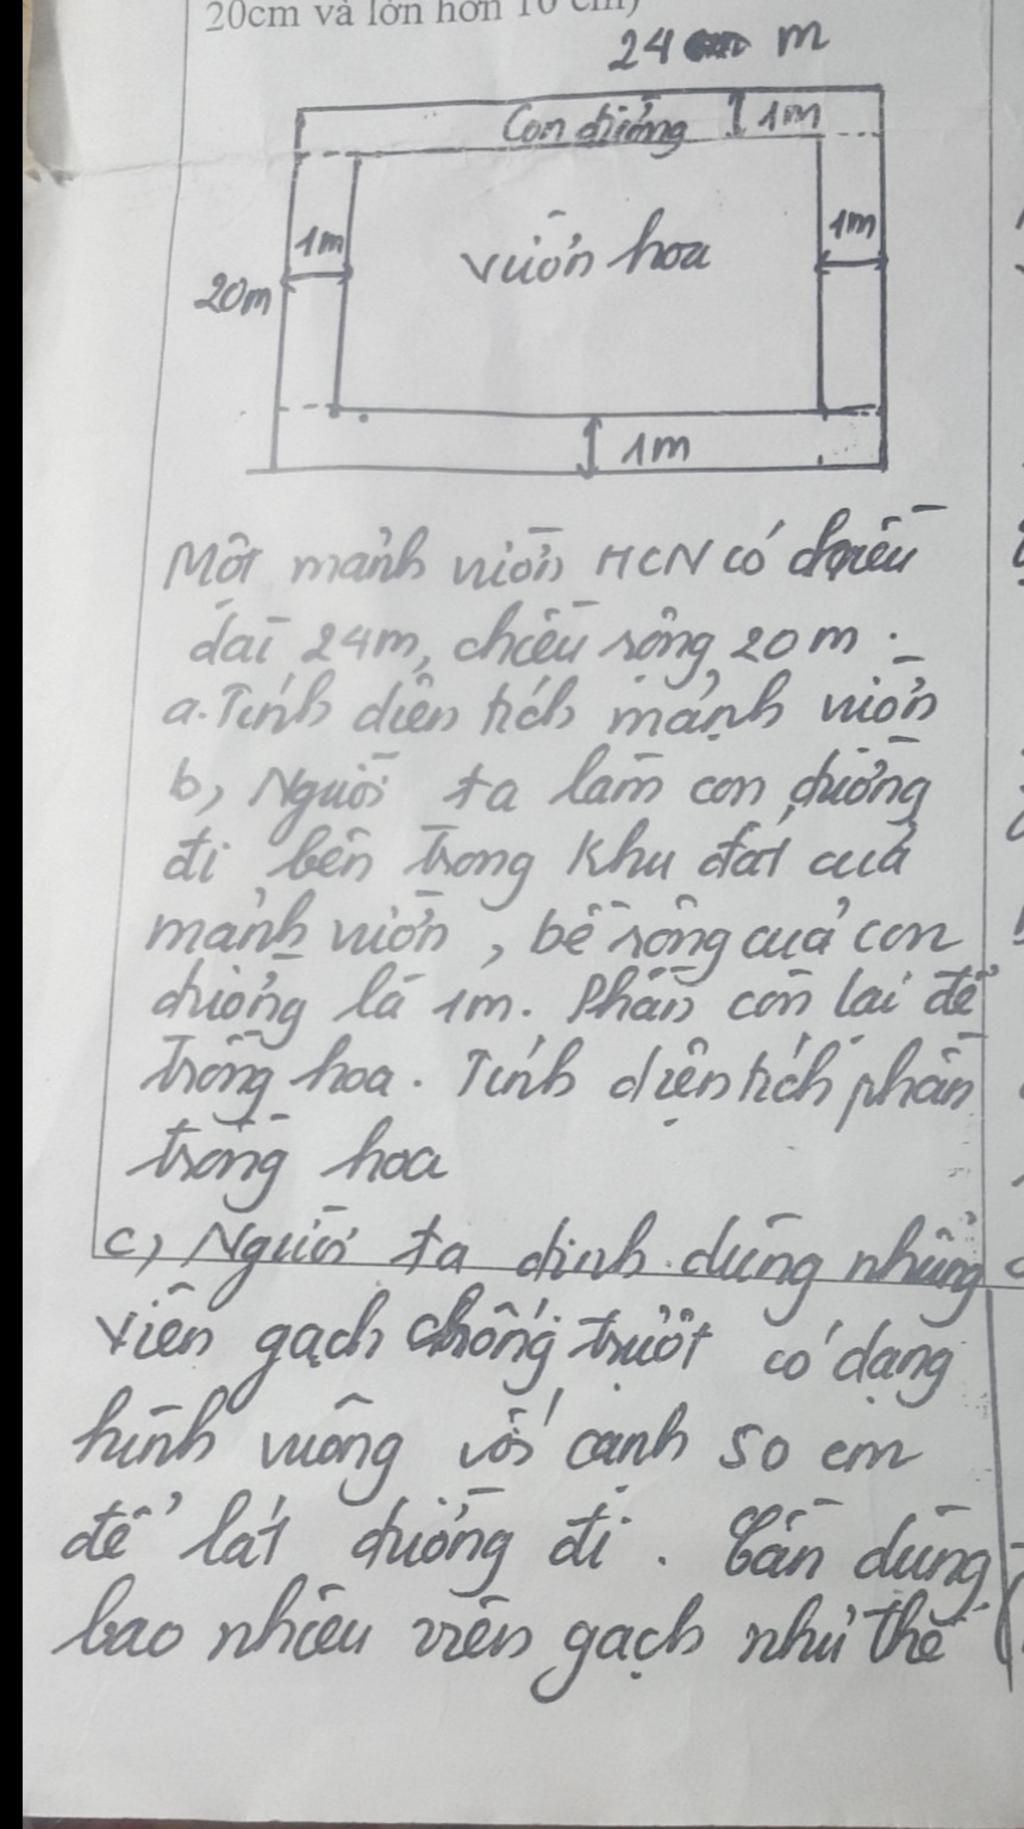 20cm và lớn hơn 10 cm)
24 m
Con đường 1m
1m
1m
vườn hoa
20m
1m
Một mảnh vườn HCN có chiều
dài 24m, chiều rộng 20m.
a. Tính diện tích mảnh vườn
b, Người ta làm con đường
đi bên trong khu đất của
mảnh vườn, bề rộng của con
đường là 1m. Phần còn lại để
trồng hoa. Tính diện tích phần
trồng hoa
c, Người ta định dùng những
viên gạch chống trượt có dạng
hình vuông với cạnh 50 cm
để lát đường đi. Cần dùng
bao nhiêu viên gạch như thế